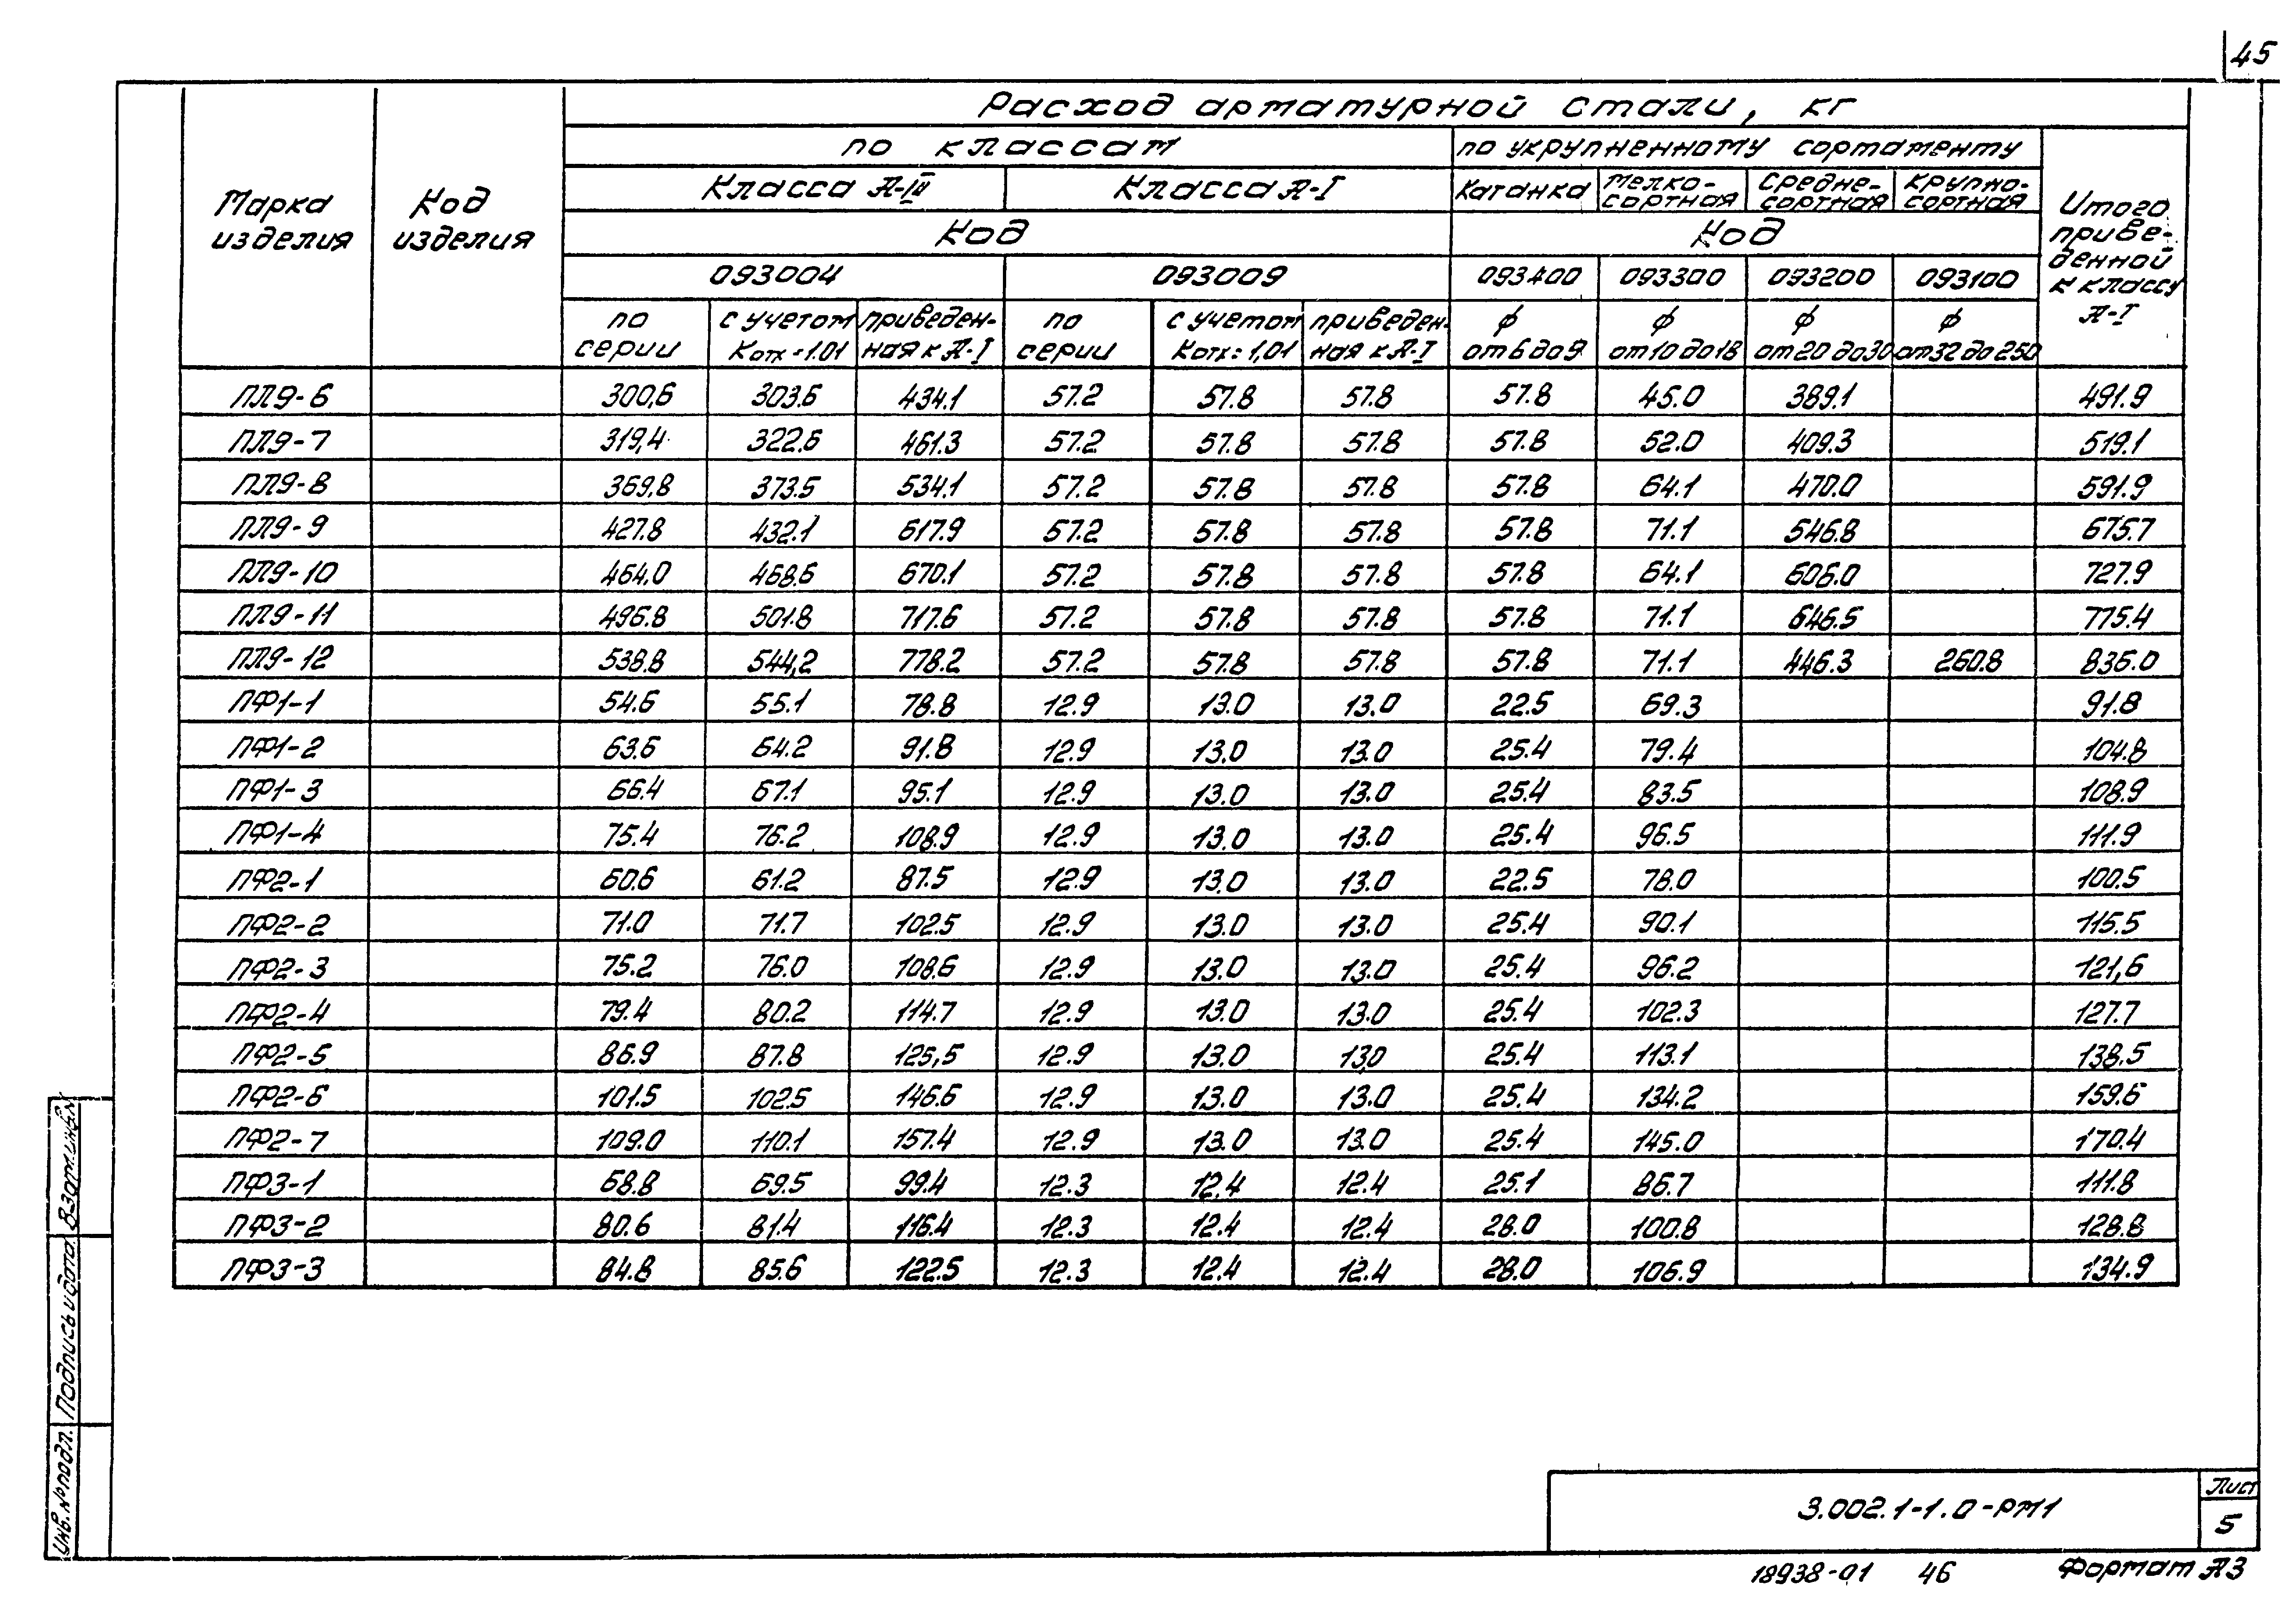 45
Расход арматурной стали, кг
по классам
по укрупненному сортаменту
Марка изделия
Код изделия
Класса А-III
Класса А-I
Катанка
Мелко-сортная
Средне-сортная
Крупно-сортная
Итого приве-денной к классу А-I
Код
Код
093004
093009
093400
093300
093200
093100
по серии
с учетом Котх=1.01
приведен-ная к А-I
по серии
с учетом Котх=1,01
приведен-ная к А-I
ф от 6 до 9
ф от 10 до 18
ф от 20 до 30
ф от 32 до 250
ПЛ9-6 300,6 303.6 434.1 57.2 57.8 57.8 57.8 45.0 389.1 491.9
ПЛ9-7 319,4 322.6 461.3 57.2 57.8 57.8 57.8 52.0 409.3 519.1
ПЛ9-8 369,8 373.5 534.1 57.2 57.8 57.8 57.8 64.1 470.0 591.9
ПЛ9-9 427.8 432.1 617.9 57.2 57.8 57.8 57.8 71.1 546.8 675.7
ПЛ9-10 464.0 468.6 670.1 57.2 57.8 57.8 57.8 64.1 606.0 727.9
ПЛ9-11 496.8 501.8 717.6 57.2 57.8 57.8 57.8 71.1 646.5 775.4
ПЛ9-12 538.8 544,2 778.2 57.2 57.8 57.8 57.8 71.1 446.3 260.8 836.0
ПФ1-1 54.6 55.1 78.8 12.9 13.0 13.0 22.5 69.3 91.8
ПФ1-2 63.6 64.2 91.8 12.9 13.0 13.0 25.4 79.4 104.8
ПФ1-3 66.4 67.1 95.1 12.9 13.0 13.0 25.4 83.5 108.9
ПФ1-4 75.4 76.2 108.9 12.9 13.0 13.0 25.4 96.5 111.9
ПФ2-1 60.6 61.2 87.5 12.9 13.0 13.0 22.5 78.0 100.5
ПФ2-2 71.0 71.7 102.5 12.9 13.0 13.0 25.4 90.1 115.5
ПФ2-3 75.2 76.0 108.6 12.9 13.0 13.0 25.4 96.2 121,6
ПФ2-4 79.4 80.2 114.7 12.9 13.0 13.0 25.4 102.3 127.7
ПФ2-5 86.9 87.8 125,5 12.9 13.0 13,0 25.4 113.1 138.5
ПФ2-6 101.5 102.5 146.6 12.9 13.0 13.0 25.4 134.2 159.6
ПФ2-7 109.0 110.1 157.4 12.9 13.0 13.0 25.4 145.0 170.4
ПФ3-1 68.8 69.5 99.4 12.3 12.4 12.4 25.1 86.7 111.8
ПФ3-2 80.6 81.4 116.4 12.3 12.4 12.4 28.0 100.8 128.8
ПФ3-3 84.8 85.6 122.5 12.3 12.4 12.4 28.0 106.9 134.9
Инв. № подл. Подпись и дата Взам. инв. №
3.002.1-1.0-РМ1
Лист
5
18938-01 46
Формат А3